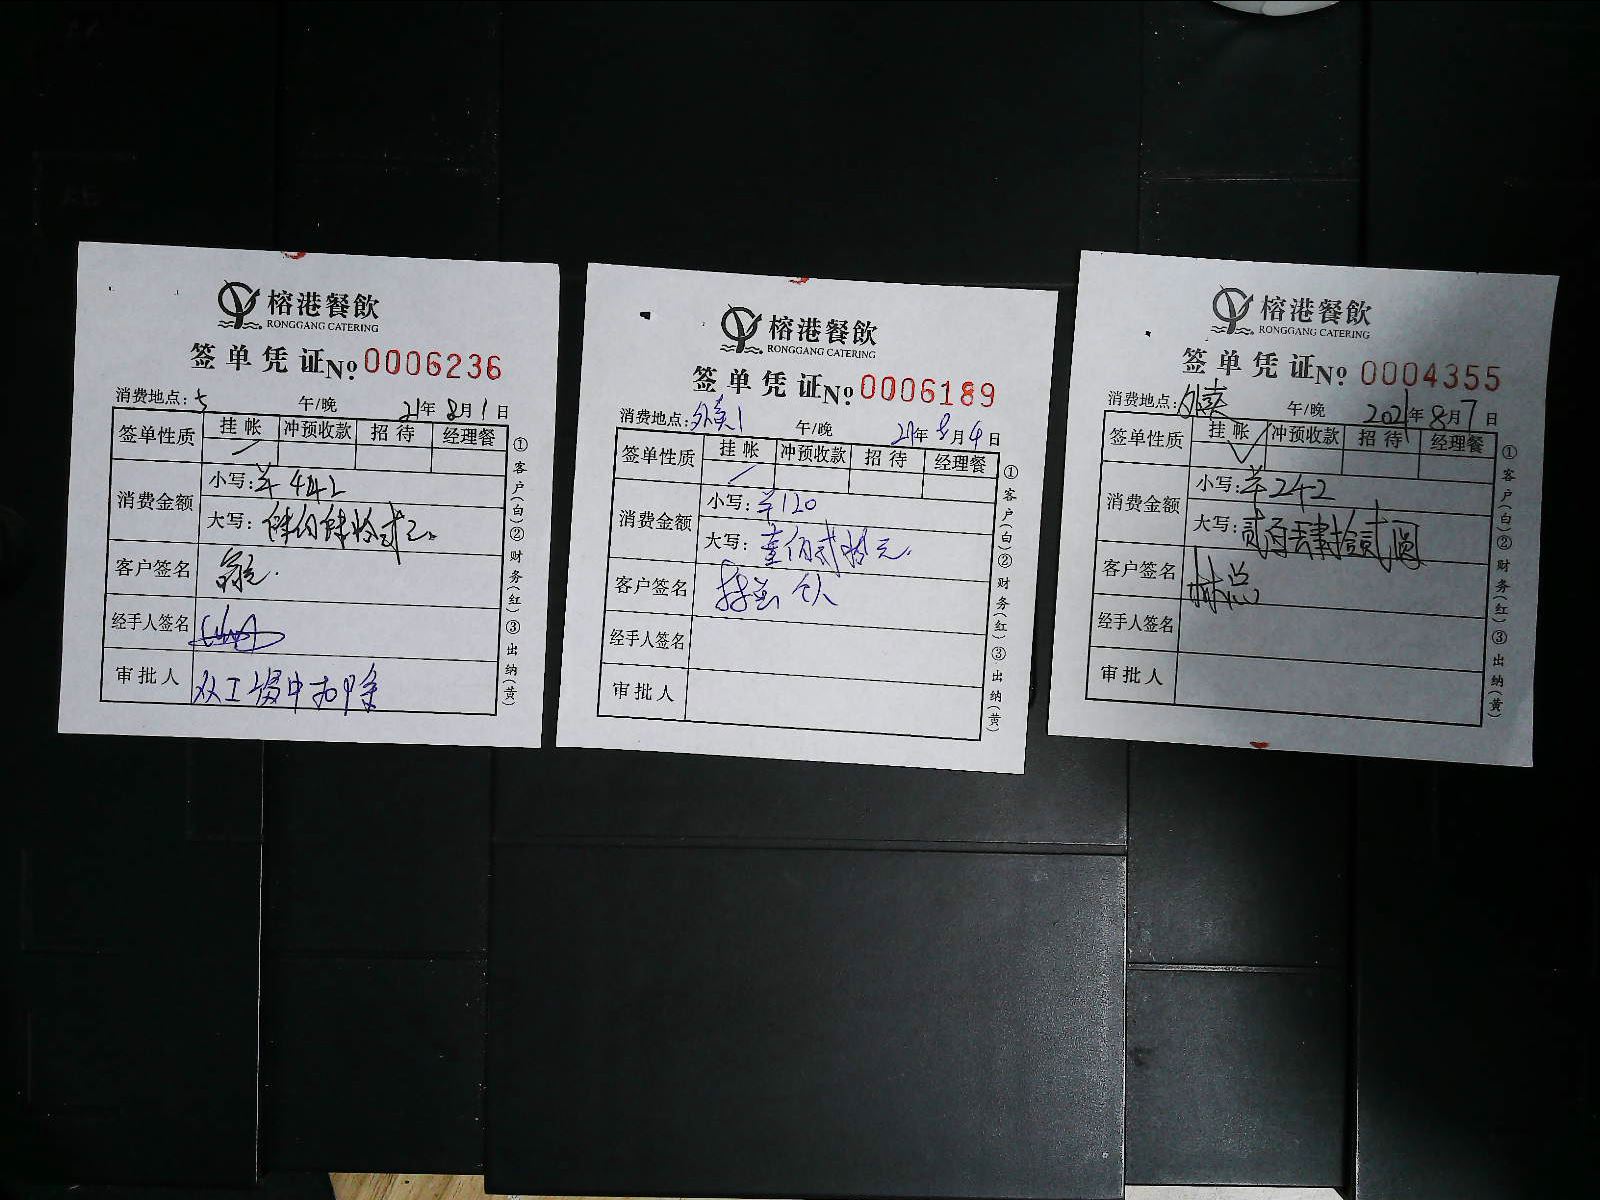 榕港餐飲
RONGGANG CATERING
签单凭证 No 0006236
消费地点: 午/晚 21年8月1日
签单性质 挂帐 冲预收款 招待 经理餐
消费金额 小写:羊442
大写: 肆佰肆拾贰元
客户签名
经手人签名
审批人 从工资中扣除
①客户(白)②财务(红)③出纳(黄)
榕港餐飲
RONGGANG CATERING
签单凭证 No 0006189
消费地点:外卖1 午/晚 21年8月4日
签单性质 挂帐 冲预收款 招待 经理餐
消费金额 小写:羊120
大写: 壹佰贰拾元
客户签名
经手人签名
审批人
①客户(白)②财务(红)③出纳(黄)
榕港餐飲
RONGGANG CATERING
签单凭证 No 0004355
消费地点:外卖 午/晚 2021年8月7日
签单性质 挂帐 冲预收款 招待 经理餐
消费金额 小写:羊242
大写:贰百肆拾贰圆
客户签名 林总
经手人签名
审批人
①客户(白)②财务(红)③出纳(黄)